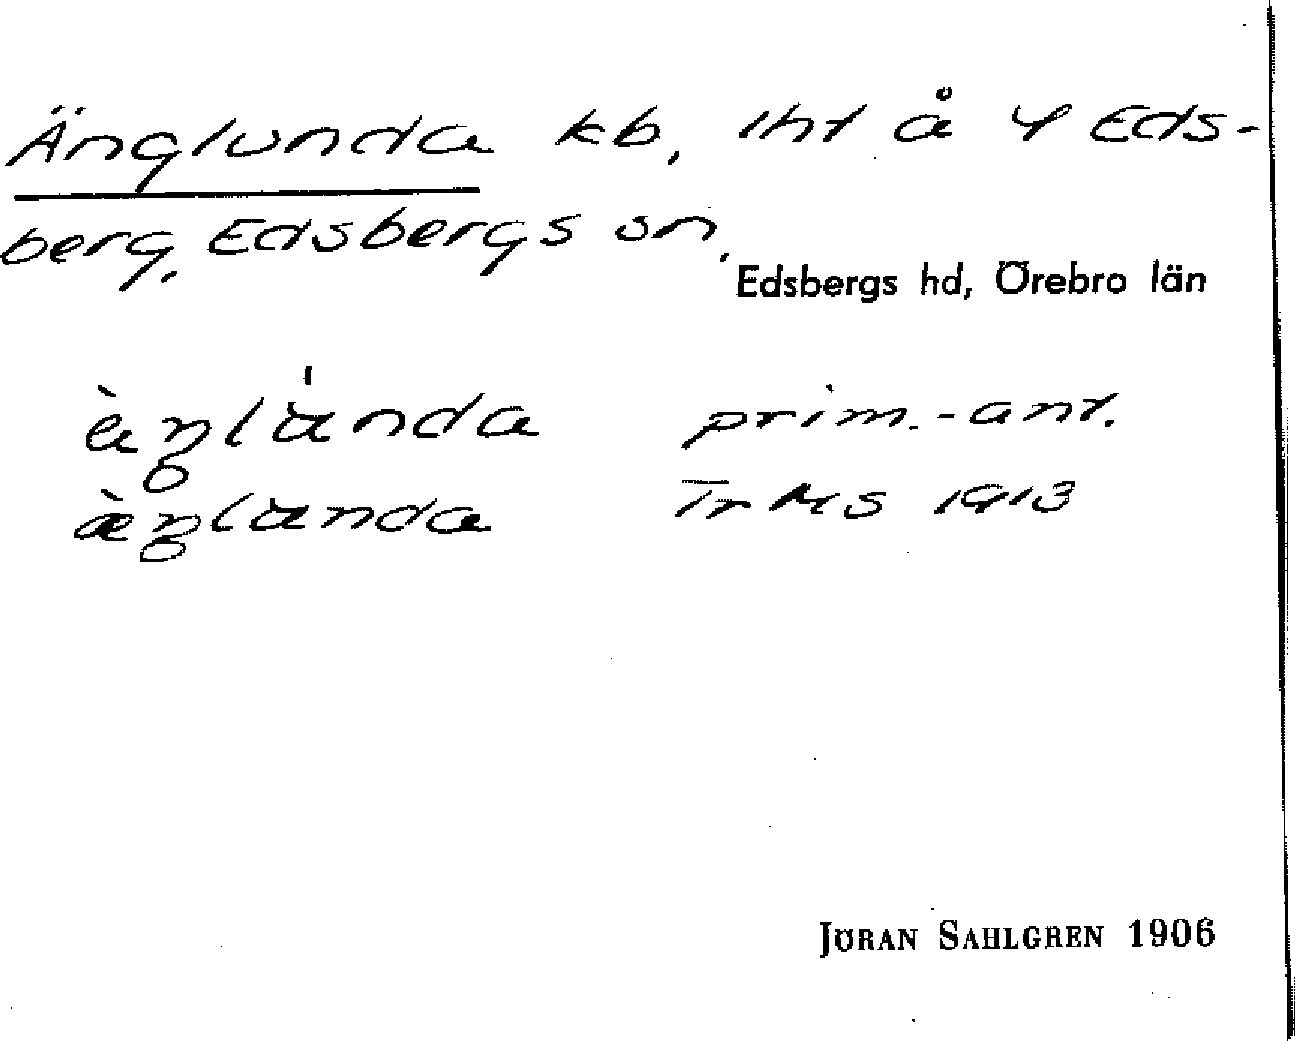 Änglunda kb, lht å 4 Eds-
berg, Edsbergs sn,
Edsbergs hd, Örebro län
prim.-ant.
Tr MS 1913
JÖRAN SAHLGREN 1906